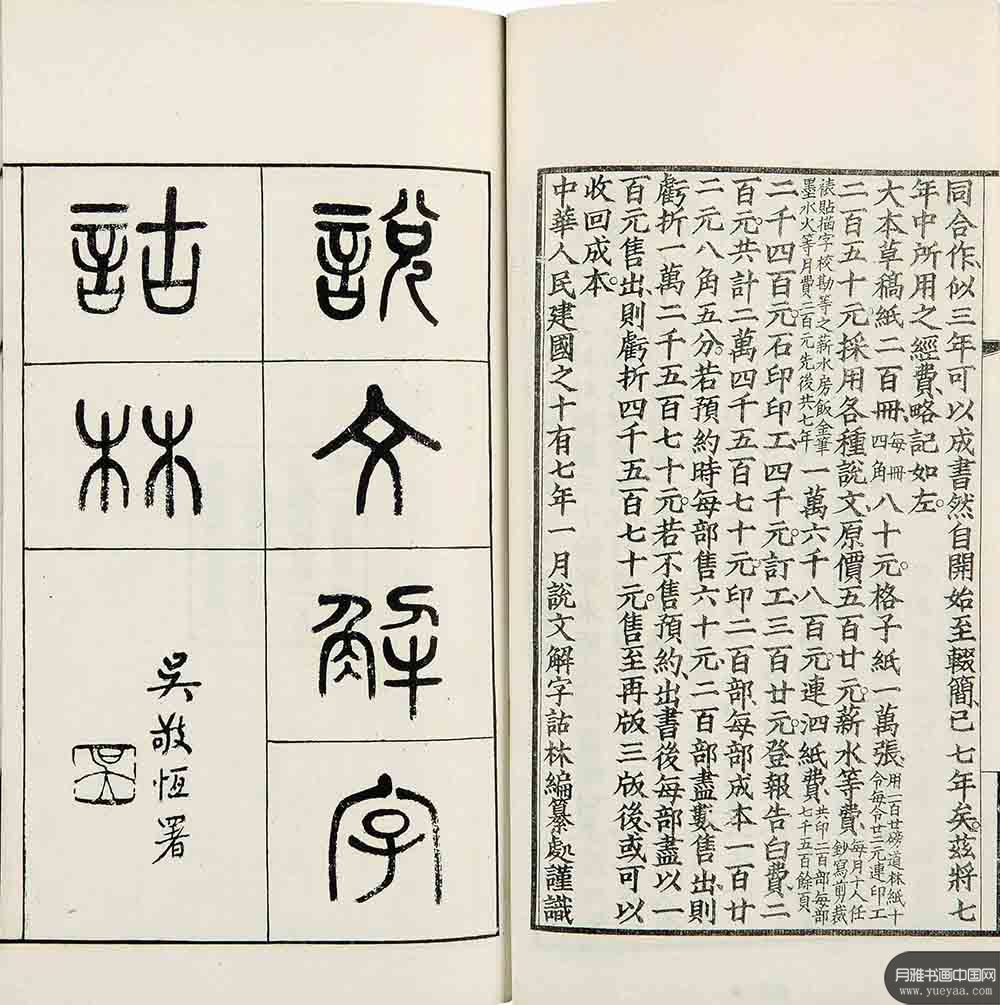 同合作、似三年可以成書、然自開始至輟簡、已七年矣。茲將七
年中所用之經費、略記如左。
大本草稿紙二百冊、每冊四角八十元。格子紙一萬張、用一百廿磅道林紙十令每令廿二元連印工
二百五十元。採用各種說文、原價五百廿元。薪水等費、每月十人任鈔寫剪裁
裱貼描字校勘等之薪水房飯金筆墨水火等月費二百元先後共七年一萬六千八百元。連泗紙費、共印二百部每部七千五百餘頁
二千四百元。石印印工、四千元。訂工、三百廿元。登報告白費、二
百元。共計二萬四千五百七十元。印二百部、每部成本一百廿
二元八角五分。若預約時每部售六十元、二百部盡數售出、則
虧折一萬二千五百七十元。若不售預約、出書後每部盡以一
百元售出、則虧折四千五百七十元。售至再版三版後、或可以
收回成本。
中華人民建國之十有七年一月說文解字詁林編纂處謹識
說文解字
詁林
吳敬恆署
吳
月雅书画中国网
www.yueyaa.com